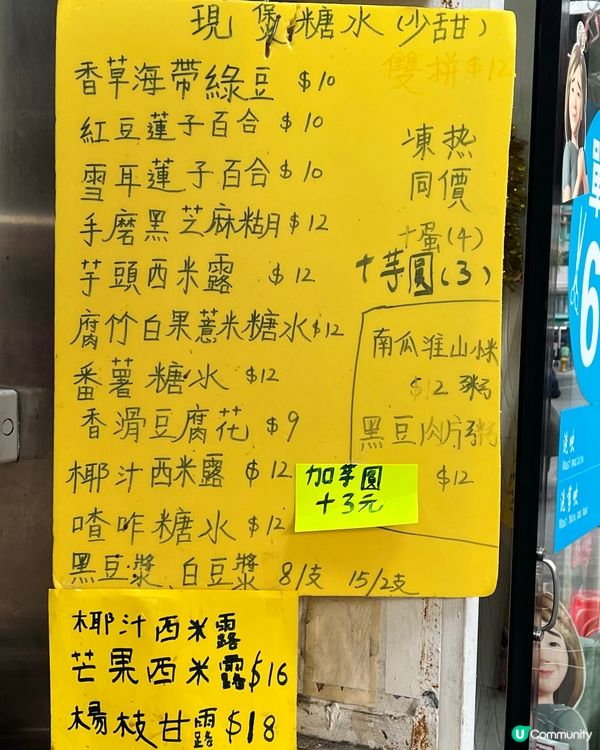 現煲糖水(少甜)
雙拼$12
香草海帶綠豆 $10
紅豆蓮子百合 $10
雪耳蓮子百合 $10
手磨黑芝麻糊 $12
芋頭西米露 $12
腐竹白果薏米糖水 $12
番薯糖水 $12
香滑豆腐花 $9
椰汁西米露 $12
喳咋糖水 $12
黑豆漿、白豆漿 8/支 15/2支
凍热
同價
+蛋(4)
+芋圓(3)
南瓜淮山小米
$12 粥
黑豆肉片粥
$12
加芋圓
+3元
椰汁西米露
芒果西米露 $16
楊枝甘露 $18
6
U Community